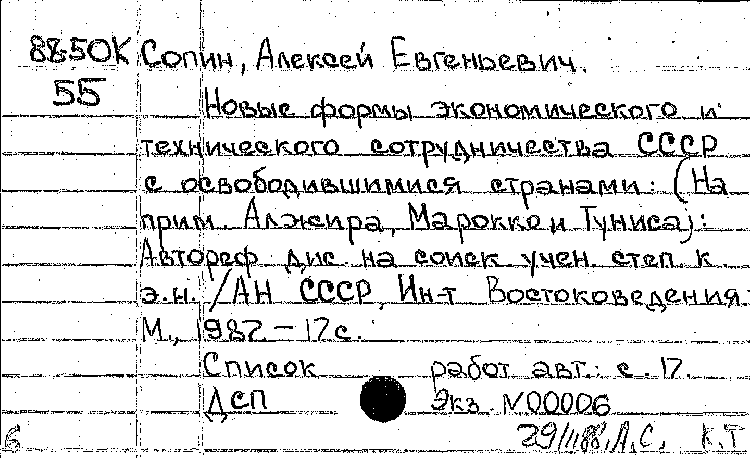 88-50К Сопин, Алексей Евгеньевич.
55
Новые формы экономического и
технического сотрудничества СССР
с освободившимися странами: (На
прим. Алжира, Марокко и Туниса):
Автореф. дис. на соиск учен. степ. к.
э.н. /АН СССР, Ин-т Востоковедения.-
М., 1987. - 17 с.
Список работ авт.: с. 17.
ДСП Экз. N00006
6 29/II88. Л.С. К.Т